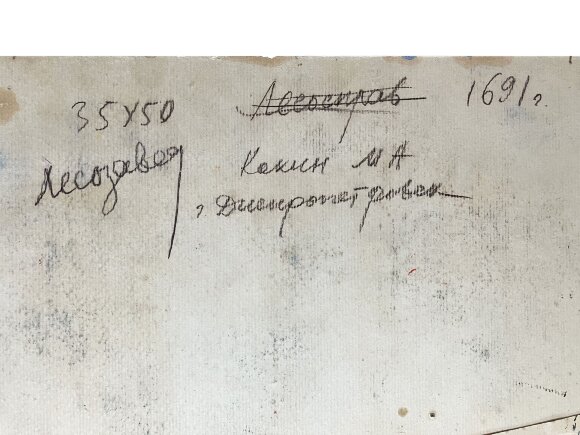 35х50 Лесосплав 1691г.
Лесозавод Кокин М А
г Днепропетровск